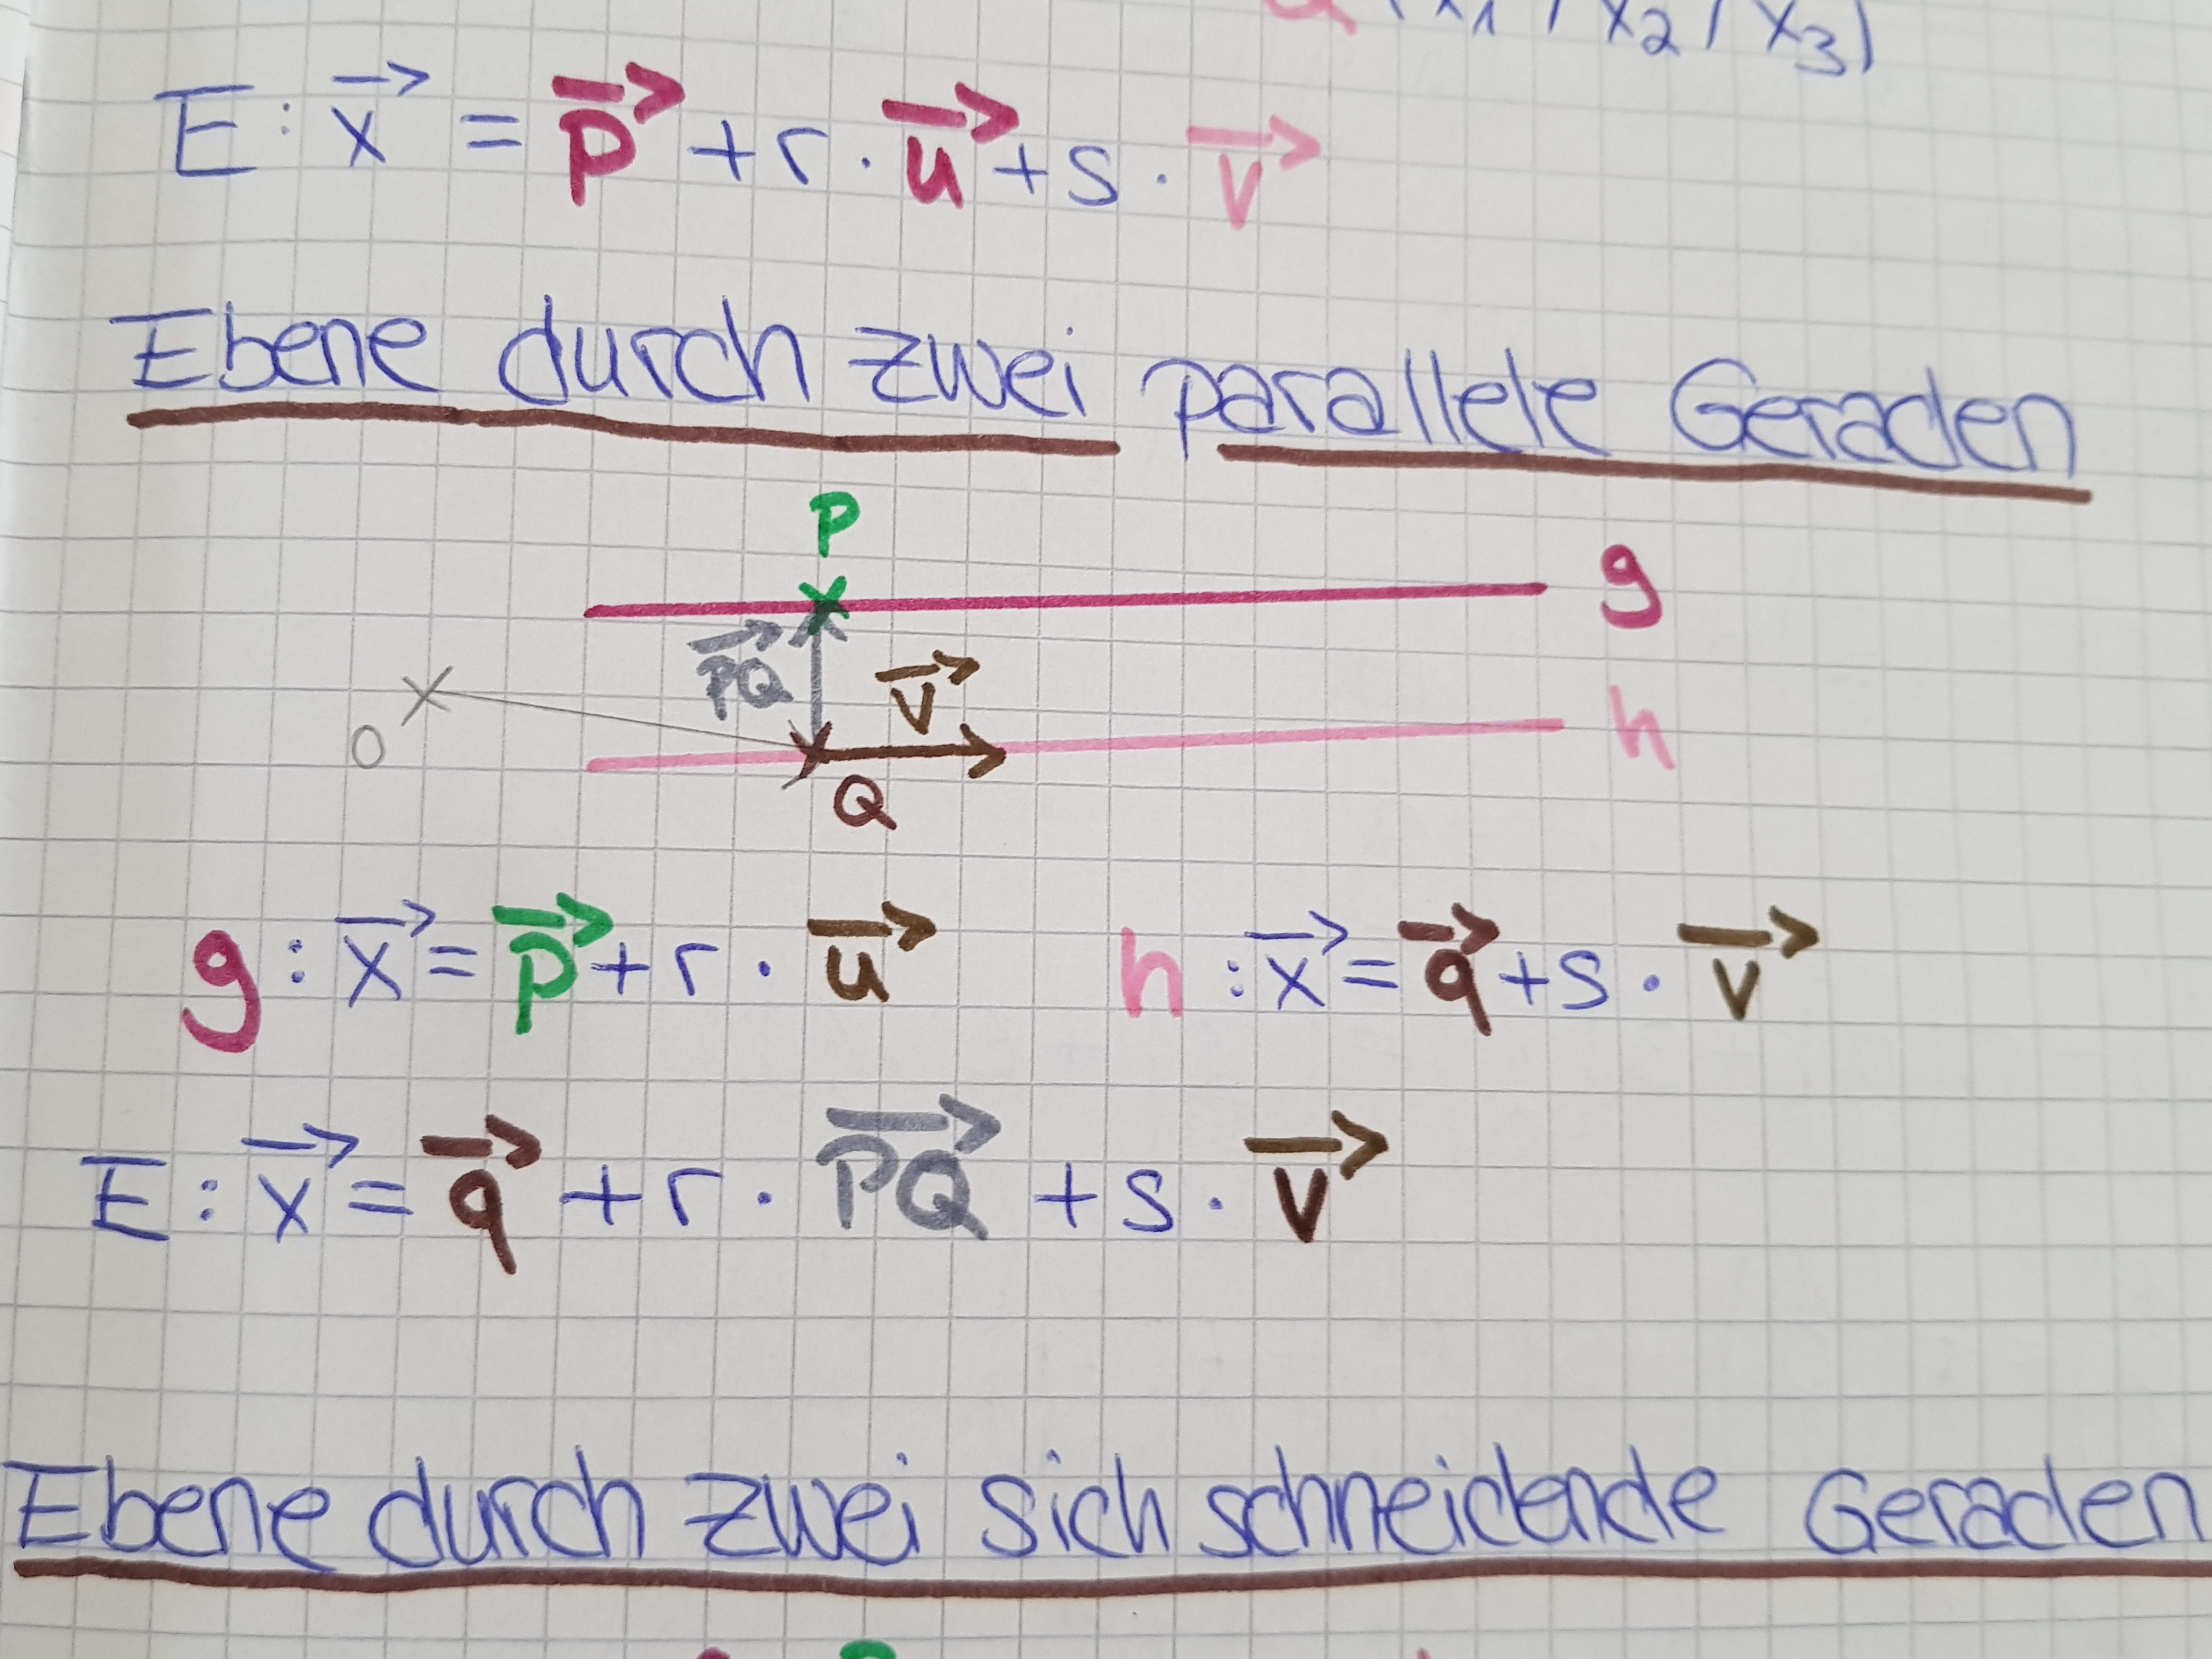 (x₁ / x₂ / x₃)
E: x⃗ = p⃗ + r · u⃗ + s · v⃗
Ebene durch zwei parallele Geraden
P
g
P͞Q⃗ v⃗
h
O
Q
g : x⃗ = p⃗ + r · u⃗ h : x⃗ = q⃗ + s · v⃗
E : x⃗ = q⃗ + r · P͞Q⃗ + s · v⃗
Ebene durch zwei sich schneidende Geraden